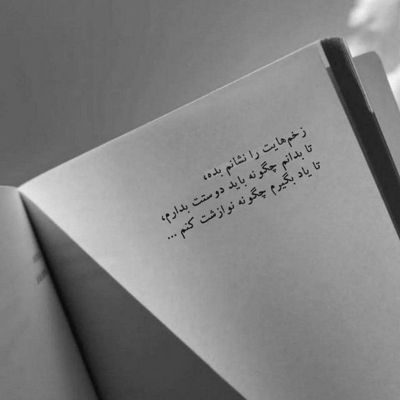 زخم‌هایت را نشانم بده،
تا بدانم چگونه باید دوستت بدارم،
تا یاد بگیرم چگونه نوازشت کنم ...